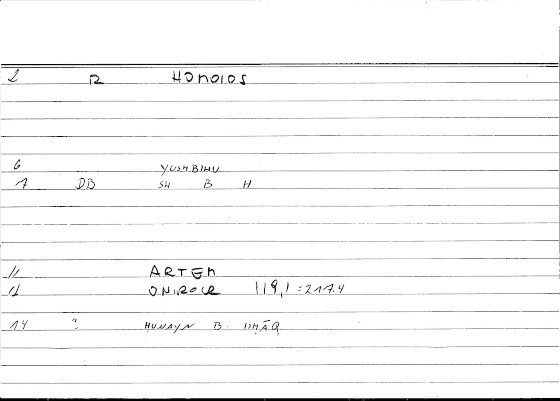 2 R HOMOIOS
6 YUSHBIHU
7 DB SH B H
11 ARTEM
12 ONIROCR 119,1 = 217.4
14 ? HUNAYN B. ISHĀQ